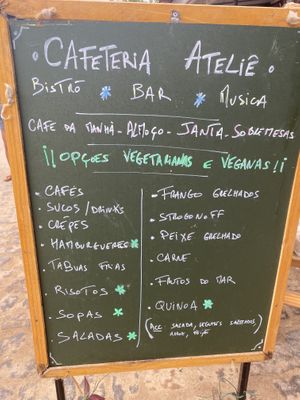 CAFETERIA ATELIÊ
BISTRÔ * BAR * MUSICA
CAFE DA MANHÃ - ALMOÇO - JANTA - SOBREMESAS
¡¡OPÇOES VEGETARIANAS E VEGANAS!¡
. CAFÉS
. SUCOS / DRINKS
. CRÊPES
. HAMBURGUERES *
. TÁBUAS FRIAS
. RISOTOS *
. SOPAS *
. SALADAS *
- FRANGO GRELHADOS
. STROGONOFF
. PEIXE GRELHADO
. CARNE
. FRUTOS DO MAR
. QUINOA *
(ACC: SALADA, LEGUMES SALTEADOS,